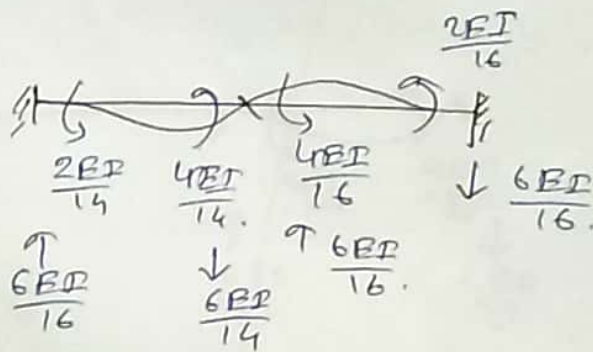 2EI/16
2EI/14 4EI/14. 4EI/16 ↓ 6EI/16.
↑ 6EI/16 ↓ 6EI/14 ↑ 6EI/16.